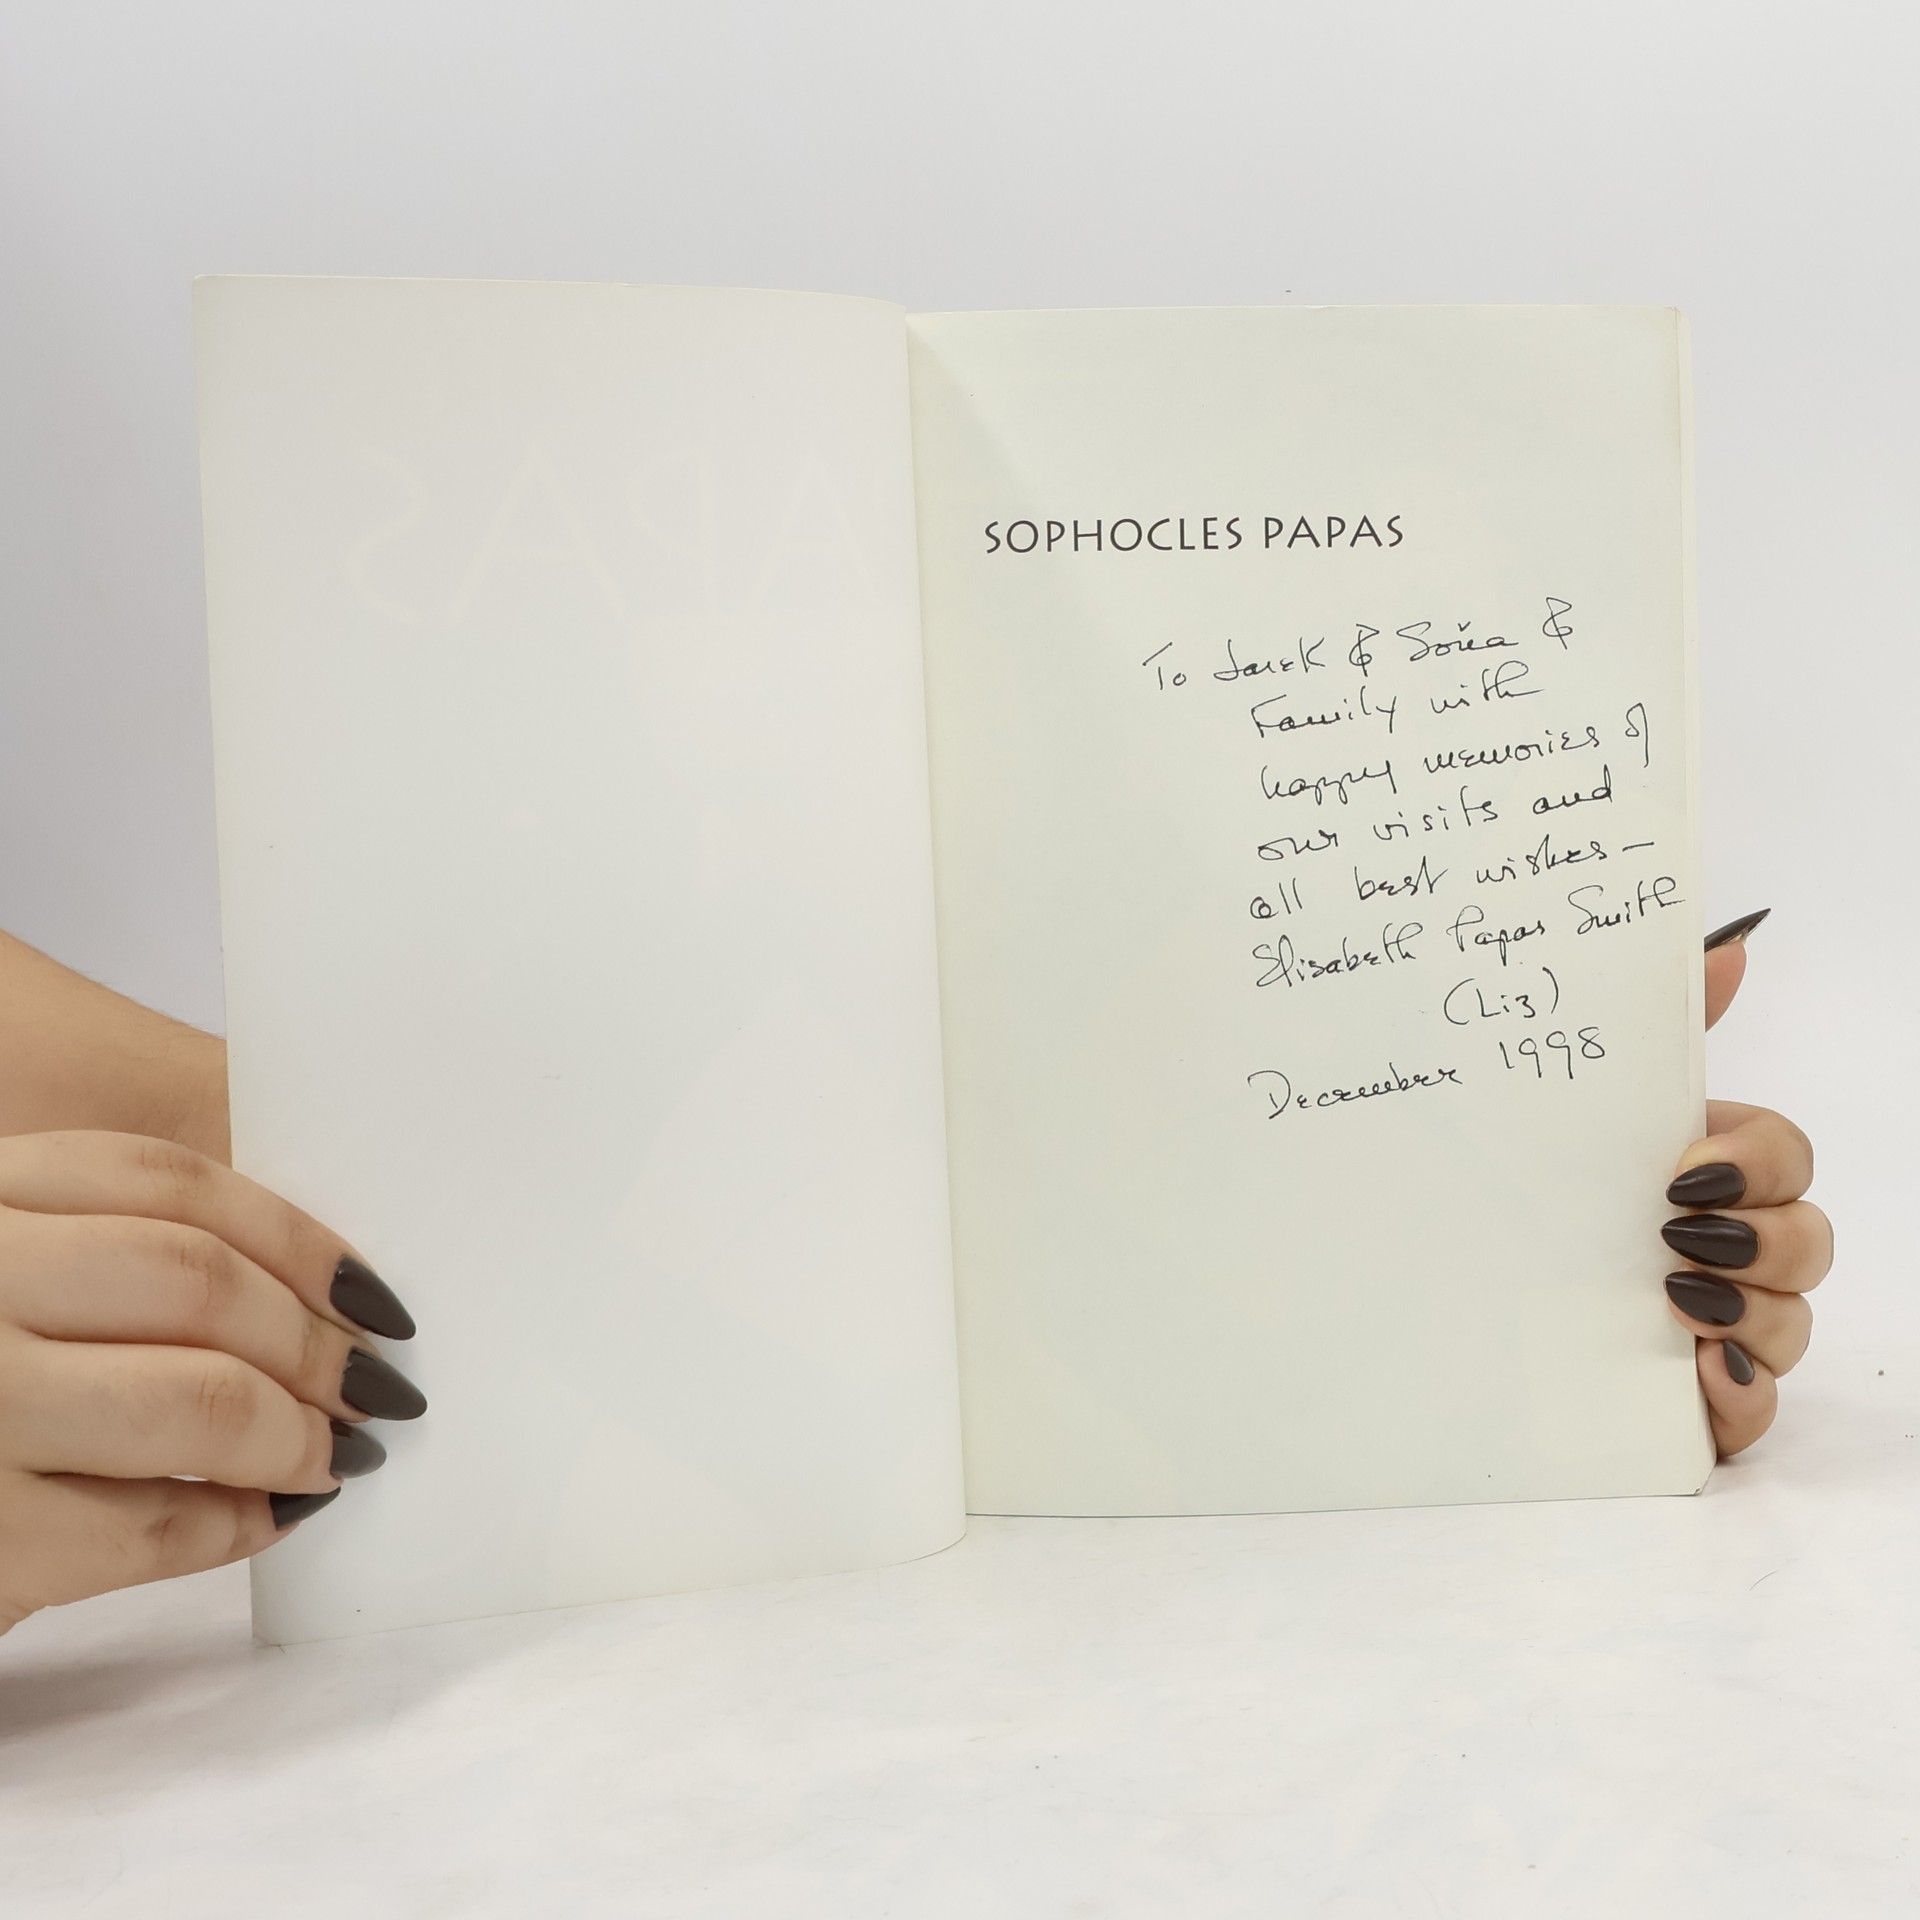 SOPHOCLES PAPAS
To Jarek & Soňa &
Family with
happy memories of
our visits and
all best wishes —
Elisabeth Papas Smith
(Liz)
December 1998